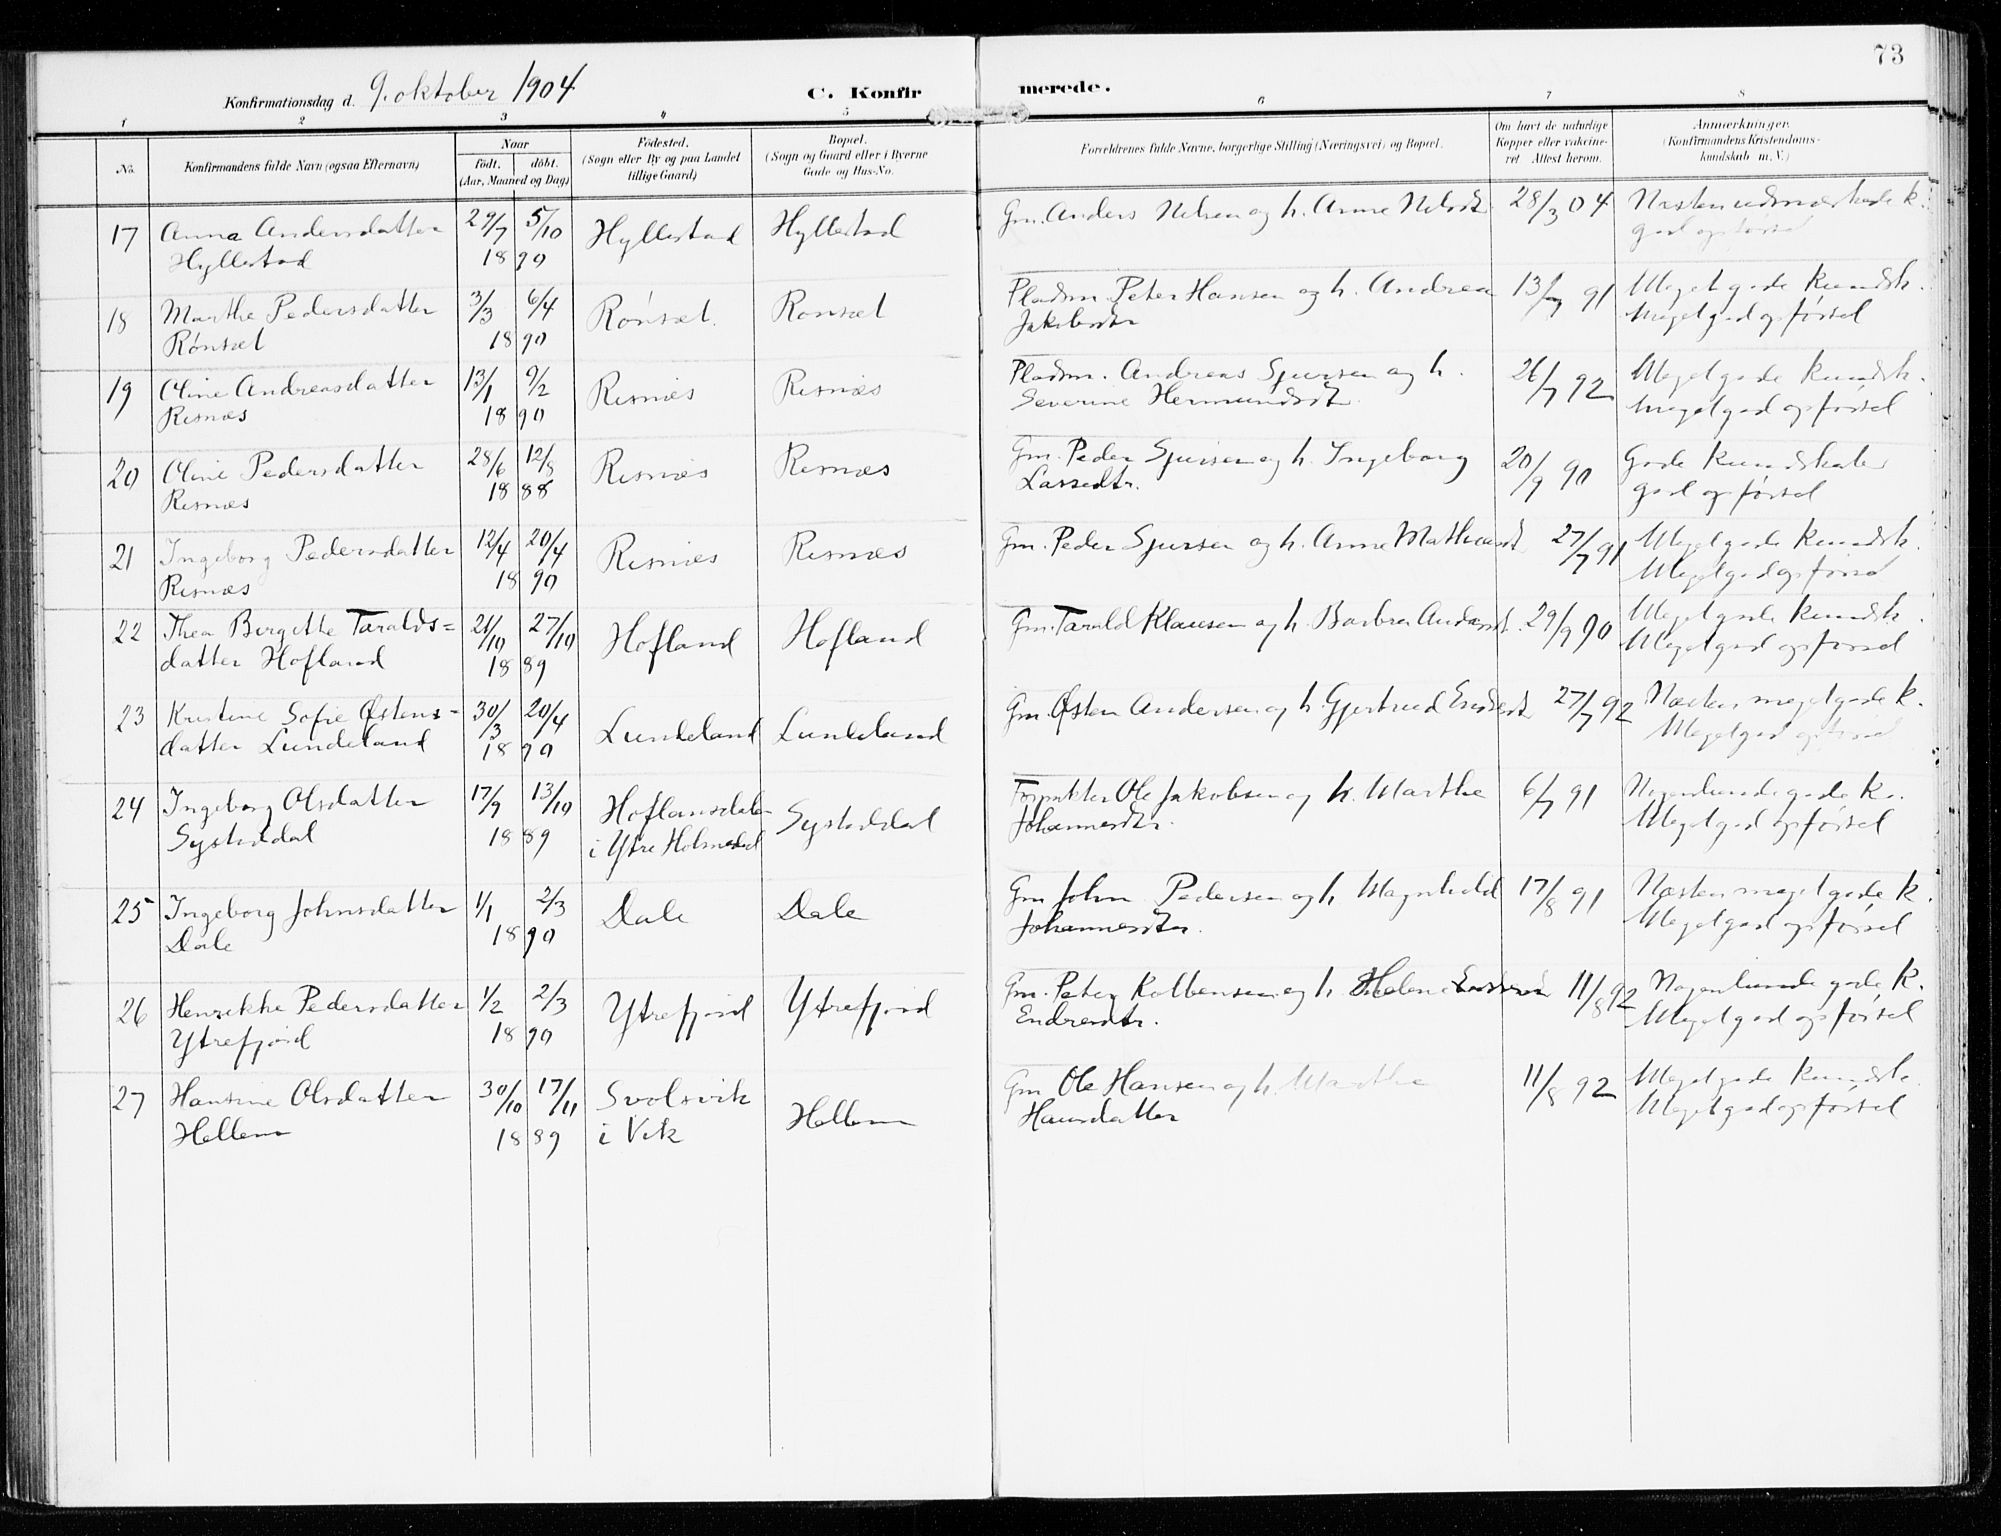 73
Konfirmationsdag d. 9. oktober 1904
C. Konfir merede.
1 2 3 4 5 6 7 8
No.
Konfirmandens fulde Navn (ogsaa Efternavn)
Naar
født. døbt.
(Aar, Maaned og Dag)
Fødested.
(Sogn eller By og paa Landet
tillige Gaard)
Bopæl.
(Sogn og Gaard eller i Byerne
Gade og Hus-No.
Forældrenes fulde Navne, borgerlige Stilling (Næringsvei) og Bopæl.
Om havt de naturlige
Kopper eller vakcine-
ret. Attest herom.
Anmærkninger.
(Konfirmandens Kristendoms-
kundskab m. V.)
17 Anna Andersdatter 29/7 5/10 Hyllestad Hyllestad Gm. Anders Nilsen og h. Anne Nilsdt 28/3 04 Næsten udmærkede k.
Hyllestad 18 90 god opførsel
18 Marthe Pedersdatter 3/3 6/4 Rønset. Rønset Pladsm. Peter Hansen og h. Andrea 13/7 91 Meget gode kundsk.
Rønset 18 90 Jakobsdtr Meget god opførsel
19 Oline Andreasdatter 13/1 9/2 Risnæs Risnæs Pladsm. Andreas Sjursen og h. 26/7 92 Meget gode kundsk.
Risnæs 18 90 Severine Hermundsdt. Meget god opførsel
20 Oline Pedersdatter 28/6 12/8 Risnæs Risnæs Gm. Peder Sjursen og h. Ingeborg 20/9 90 Gode kundskaber
Risnæs 18 88 Lassedtr. god opførsel
21 Ingeborg Pedersdatter 12/4 20/4 Risnæs Risnæs Gm. Peder Sjursen og h. Anne 27/7 91 Meget gode kundsk.
Risnæs 18 90 Meget god opførsel
22 Thea Birgitte Taralds= 21/10 27/10 Hofland Hofland Gm. Tarald Klausen og h. Barbra Andersdt. 29/9 90 Meget gode kundsk.
datter Hofland 18 89 Meget god opførsel
23 Kristine Sofie Østens- 30/3 20/4 Lundeland Lundeland Gm. Østen Andersen og h. Gjertrud 27/7 92 Næsten meget gode k.
datter Lundeland 18 90 Meget god opførsel
24 Ingeborg Olsdatter 17/9 13/10 Hoflandsdalen Systaddal Ole Jakobsen og h. Marthe 6/7 91 Nogenlunde gode k.
Systaddal 18 89 i Ytre Holmedal Johannesdtr. Meget god opførsel
25 Ingeborg Johnsdatter 1/1 2/3 Dale Dale Gm John Pedersen og h. Magnhild 17/8 91 Næsten meget gode k.
Dale 18 90 Johannesdtr. Meget god opførsel
26 Henrikke Pedersdatter 1/2 2/3 Ytrefjord Ytrefjord Gm. Peter Kolbensen og h. Helene 11/8 92 Nogenlunde gode k.
Ytrefjord 18 90 Endresdtr. Meget god opførsel
27 Hansine Olsdatter 30/10 17/11 Svolsvik Hellem Gm Ole Hansen og h. Marthe 11/8 92 Meget gode kundsk.
Hellem 18 89 i Vik Hansdatter Meget god opførsel